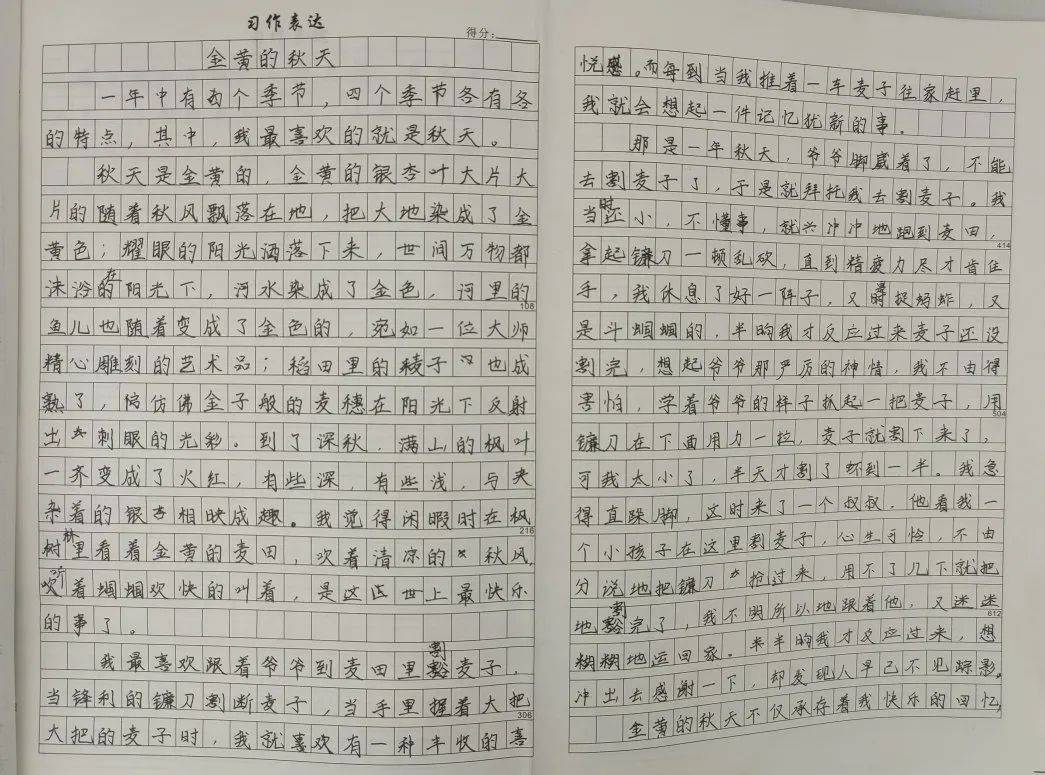 习作表达
得分:
金黄的秋天
一年中有四个季节，四个季节各有各
的特点，其中，我最喜欢的就是秋天。
秋天是金黄的，金黄的银杏叶大片大
片的随着秋风飘落在地，把大地染成了金
黄色；耀眼的阳光洒落下来，世间万物都
沐浴在阳光下，河水染成了金色，河里的
108
鱼儿也随着变成了金色的，宛如一位大师
精心雕刻的艺术品；稻田里的稜子也成
熟了，仿佛金子般的麦穗在阳光下反射
出刺眼的光彩。到了深秋，满山的枫叶
一齐变成了火红，有些深，有些浅，与夹
杂着的银杏相映成趣。我觉得闲暇时在枫
216
树林里看着金黄的麦田，吹着清凉的秋风，
听着蝈蝈欢快的叫着，是这世上最快乐
的事了。
我最喜欢跟着爷爷到麦田里割麦子，
当锋利的镰刀割断麦子，当手里握着大把
306
大把的麦子时，我就喜欢有一种丰收的喜
悦感。而每到当我推着一车麦子往家赶里，
我就会想起一件记忆犹新的事。
那是一年秋天，爷爷脚崴着了，不能
去割麦子了，于是就拜托我去割麦子。我
当时还小，不懂事，就兴冲冲地跑到麦田，
414
拿起镰刀一顿乱砍，直到精疲力尽才肯住
手，我休息了好一阵子，又是捉蚂蚱，又
是斗蝈蝈的，半晌我才反应过来麦子还没
割完，想起爷爷那严厉的神情，我不由得
害怕，学着爷爷的样子抓起一把麦子，用
504
镰刀在下面用力一拉，麦子就割下来了，
可我太小了，半天才割了不到一半。我急
得直跺脚，这时来了一个叔叔，他看我一
个小孩子在这里割麦子，心生可怜，不由
分说地把镰刀抢过来，用不了几下就把
地割完了，我不明所以地跟着他，又迷迷
612
糊糊地运回家。半晌我才反应过来，想
冲出去感谢一下，却发现人早已不见踪影。
金黄的秋天不仅承存着我快乐的回忆，